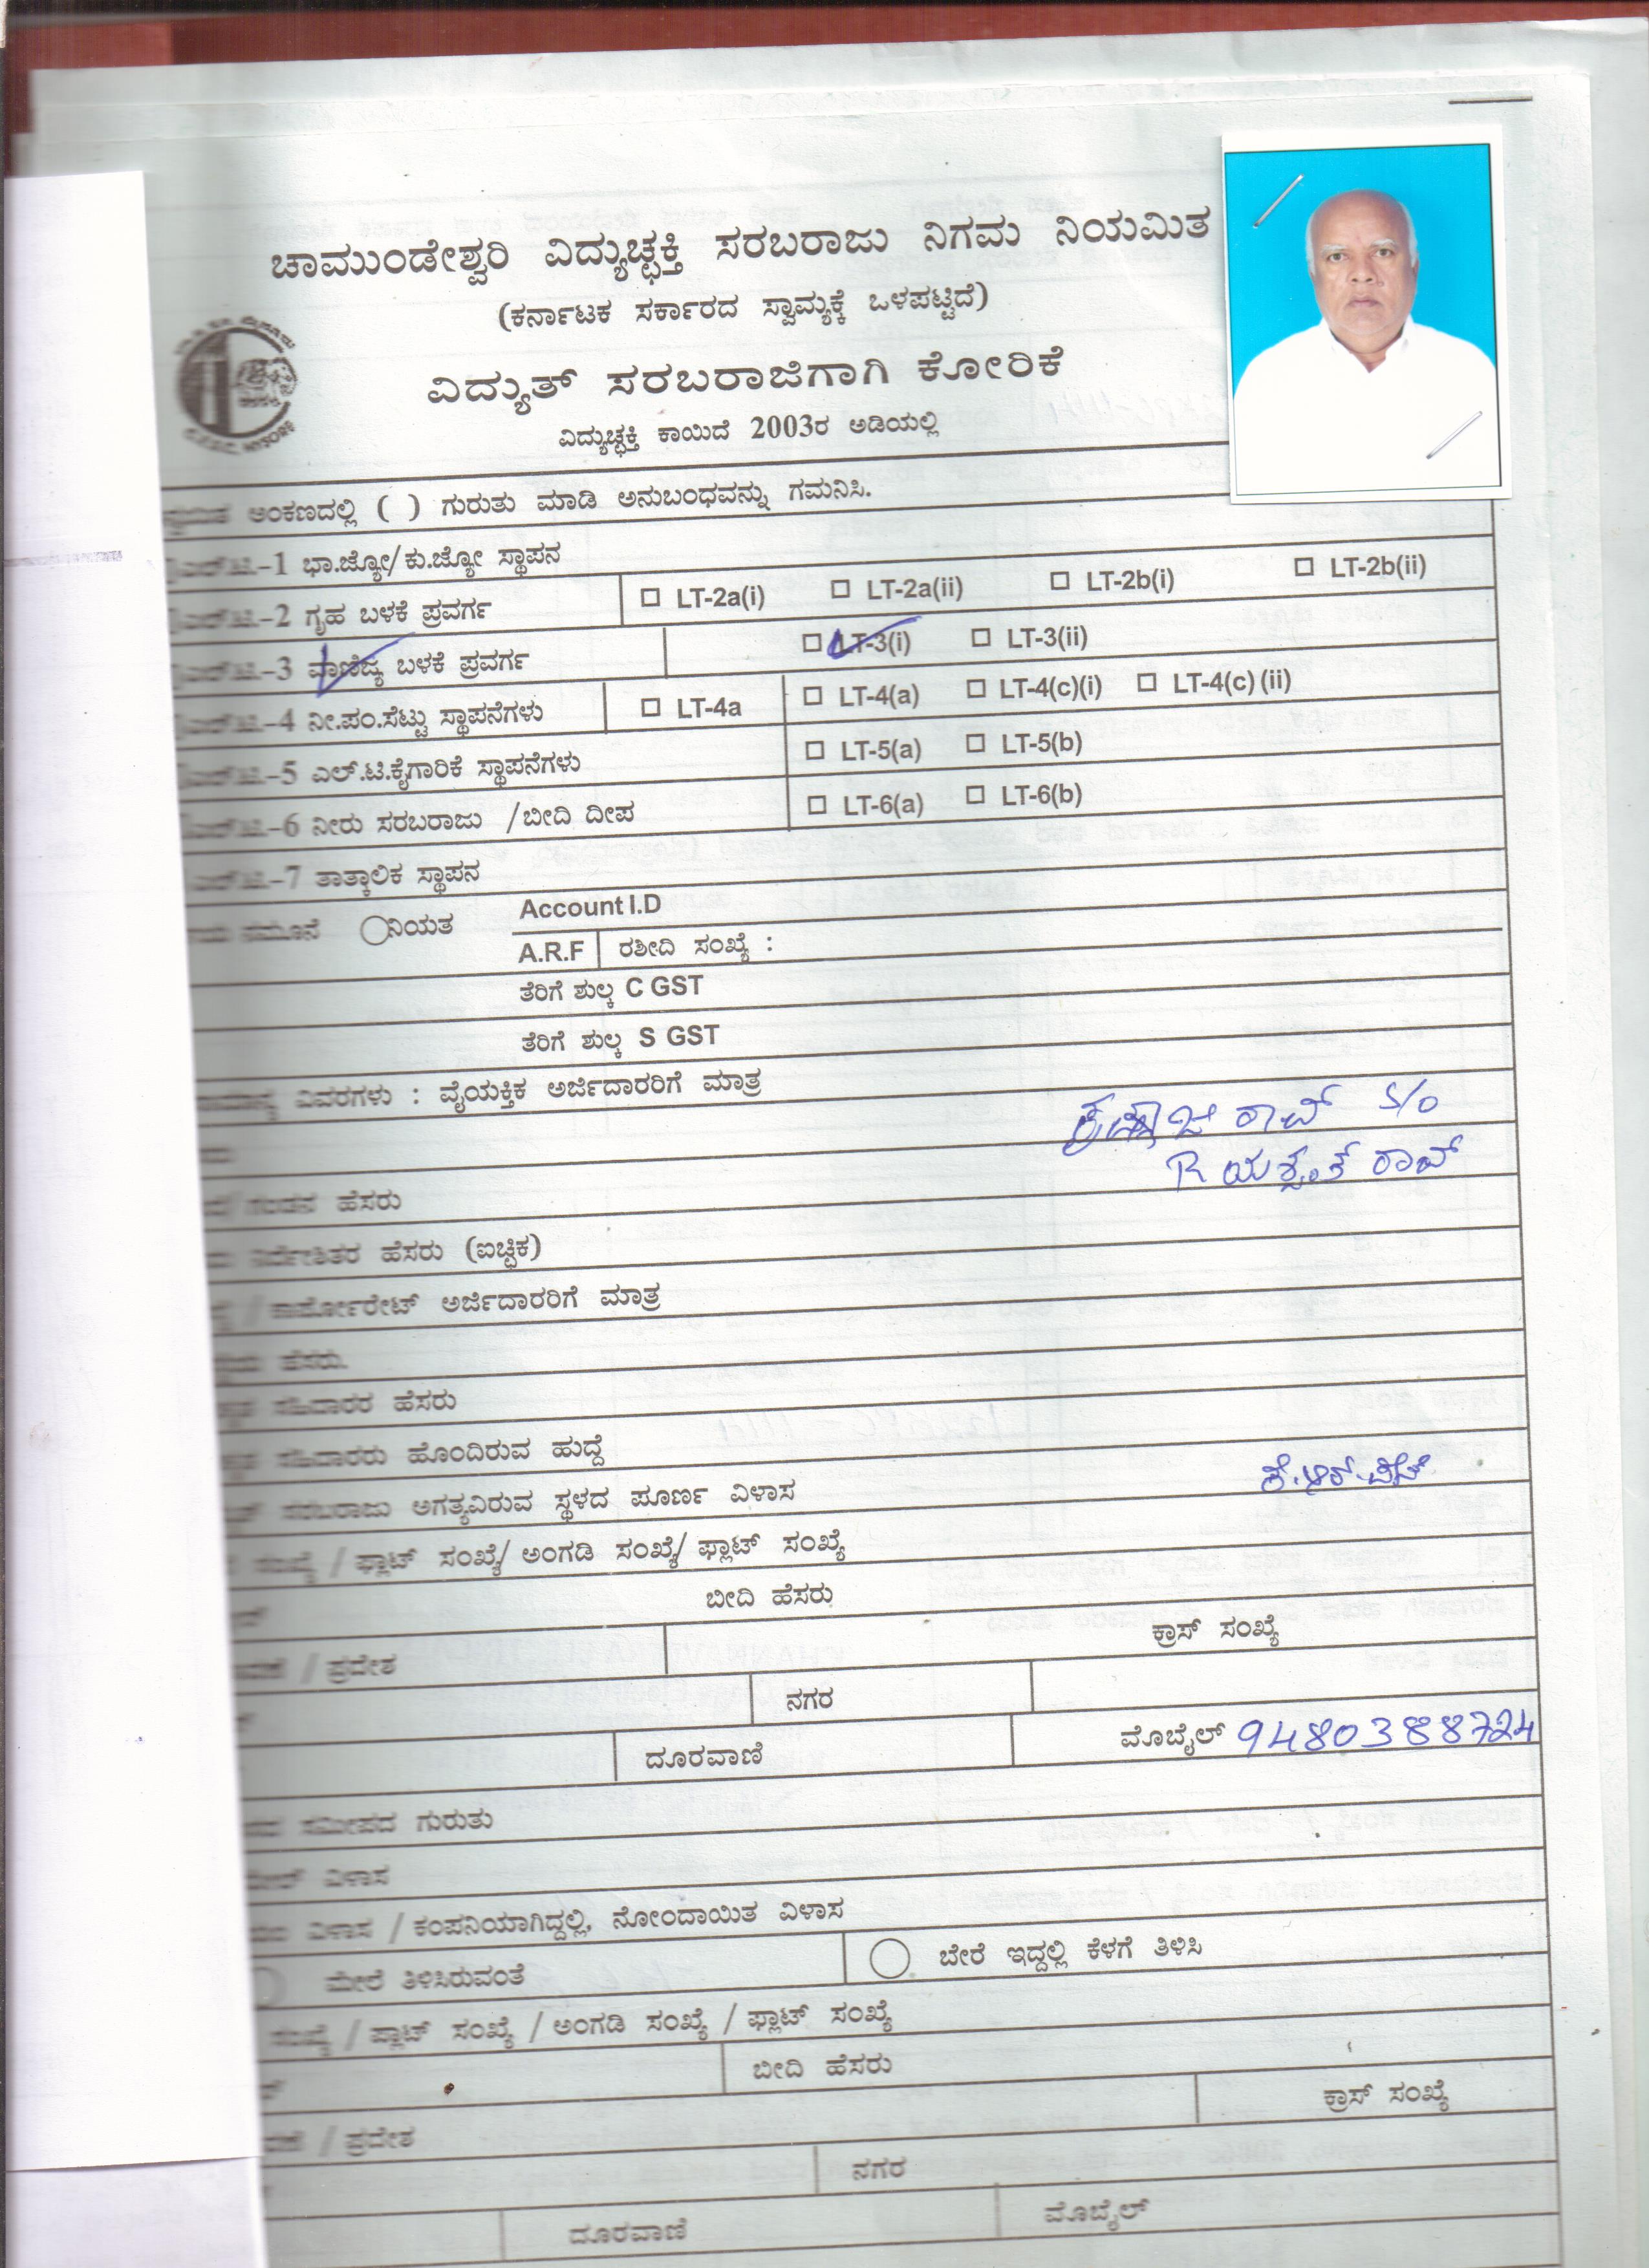 ಚಾಮುಂಡೇಶ್ವರಿ ವಿದ್ಯುಚ್ಛಕ್ತಿ ಸರಬರಾಜು ನಿಗಮ ನಿಯಮಿತ
(ಕರ್ನಾಟಕ ಸರ್ಕಾರದ ಸ್ವಾಮ್ಯಕ್ಕೆ ಒಳಪಟ್ಟಿದೆ)
ವಿದ್ಯುತ್ ಸರಬರಾಜಿಗಾಗಿ ಕೋರಿಕೆ
ವಿದ್ಯುಚ್ಛಕ್ತಿ ಕಾಯಿದೆ 2003ರ ಅಡಿಯಲ್ಲಿ
ಅಂಕಣದಲ್ಲಿ ( ) ಗುರುತು ಮಾಡಿ ಅನುಬಂಧವನ್ನು ಗಮನಿಸಿ.
ಎಲ್.ಟಿ.-1 ಭಾ.ಜ್ಯೋ/ಕು.ಜ್ಯೋ ಸ್ಥಾಪನ
ಎಲ್.ಟಿ.-2 ಗೃಹ ಬಳಕೆ ಪ್ರವರ್ಗ LT-2a(i) LT-2a(ii) LT-2b(i) LT-2b(ii)
ಎಲ್.ಟಿ.-3 ವಾಣಿಜ್ಯ ಬಳಕೆ ಪ್ರವರ್ಗ LT-3(i) LT-3(ii)
ಎಲ್.ಟಿ.-4 ನೀ.ಪಂ.ಸೆಟ್ಟು ಸ್ಥಾಪನೆಗಳು LT-4a LT-4(a) LT-4(c)(i) LT-4(c) (ii)
ಎಲ್.ಟಿ.-5 ಎಲ್.ಟಿ.ಕೈಗಾರಿಕೆ ಸ್ಥಾಪನೆಗಳು LT-5(a) LT-5(b)
ಎಲ್.ಟಿ.-6 ನೀರು ಸರಬರಾಜು /ಬೀದಿ ದೀಪ LT-6(a) LT-6(b)
ಎಲ್.ಟಿ.-7 ತಾತ್ಕಾಲಿಕ ಸ್ಥಾಪನ
ನಮೂನೆ ನಿಯತ Account I.D
A.R.F ರಶೀದಿ ಸಂಖ್ಯೆ :
ತೆರಿಗೆ ಶುಲ್ಕ C GST
ತೆರಿಗೆ ಶುಲ್ಕ S GST
ವಿವರಗಳು : ವೈಯಕ್ತಿಕ ಅರ್ಜಿದಾರರಿಗೆ ಮಾತ್ರ
ರಾವ್ S/o
R ಯಶ್ವಂತ ರಾವ್
ಗಂಡನ ಹೆಸರು
ನಿರ್ದೇಶಿತರ ಹೆಸರು (ಐಚ್ಛಿಕ)
/ ಕಾರ್ಪೋರೇಟ್ ಅರ್ಜಿದಾರರಿಗೆ ಮಾತ್ರ
ಹೆಸರು.
ಸಹಿದಾರರ ಹೆಸರು
ಸಹಿದಾರರು ಹೊಂದಿರುವ ಹುದ್ದೆ
ಸರಬರಾಜು ಅಗತ್ಯವಿರುವ ಸ್ಥಳದ ಪೂರ್ಣ ವಿಳಾಸ ಕೆ.ಆರ್.ಪೇಟೆ
ಸಂಖ್ಯೆ / ಫ್ಲಾಟ್ ಸಂಖ್ಯೆ/ ಅಂಗಡಿ ಸಂಖ್ಯೆ/ ಫ್ಲಾಟ್ ಸಂಖ್ಯೆ
ಬೀದಿ ಹೆಸರು
/ ಪ್ರದೇಶ ಕ್ರಾಸ್ ಸಂಖ್ಯೆ
ನಗರ
ದೂರವಾಣಿ ಮೊಬೈಲ್ 9480388724
ಸಮೀಪದ ಗುರುತು
ವಿಳಾಸ
ವಿಳಾಸ / ಕಂಪನಿಯಾಗಿದ್ದಲ್ಲಿ, ನೋಂದಾಯಿತ ವಿಳಾಸ
ಮೇಲೆ ತಿಳಿಸಿರುವಂತೆ ಬೇರೆ ಇದ್ದಲ್ಲಿ ಕೆಳಗೆ ತಿಳಿಸಿ
ಸಂಖ್ಯೆ / ಪ್ಲಾಟ್ ಸಂಖ್ಯೆ / ಅಂಗಡಿ ಸಂಖ್ಯೆ / ಫ್ಲಾಟ್ ಸಂಖ್ಯೆ
ಬೀದಿ ಹೆಸರು
/ ಪ್ರದೇಶ ಕ್ರಾಸ್ ಸಂಖ್ಯೆ
ನಗರ
ದೂರವಾಣಿ ಮೊಬೈಲ್